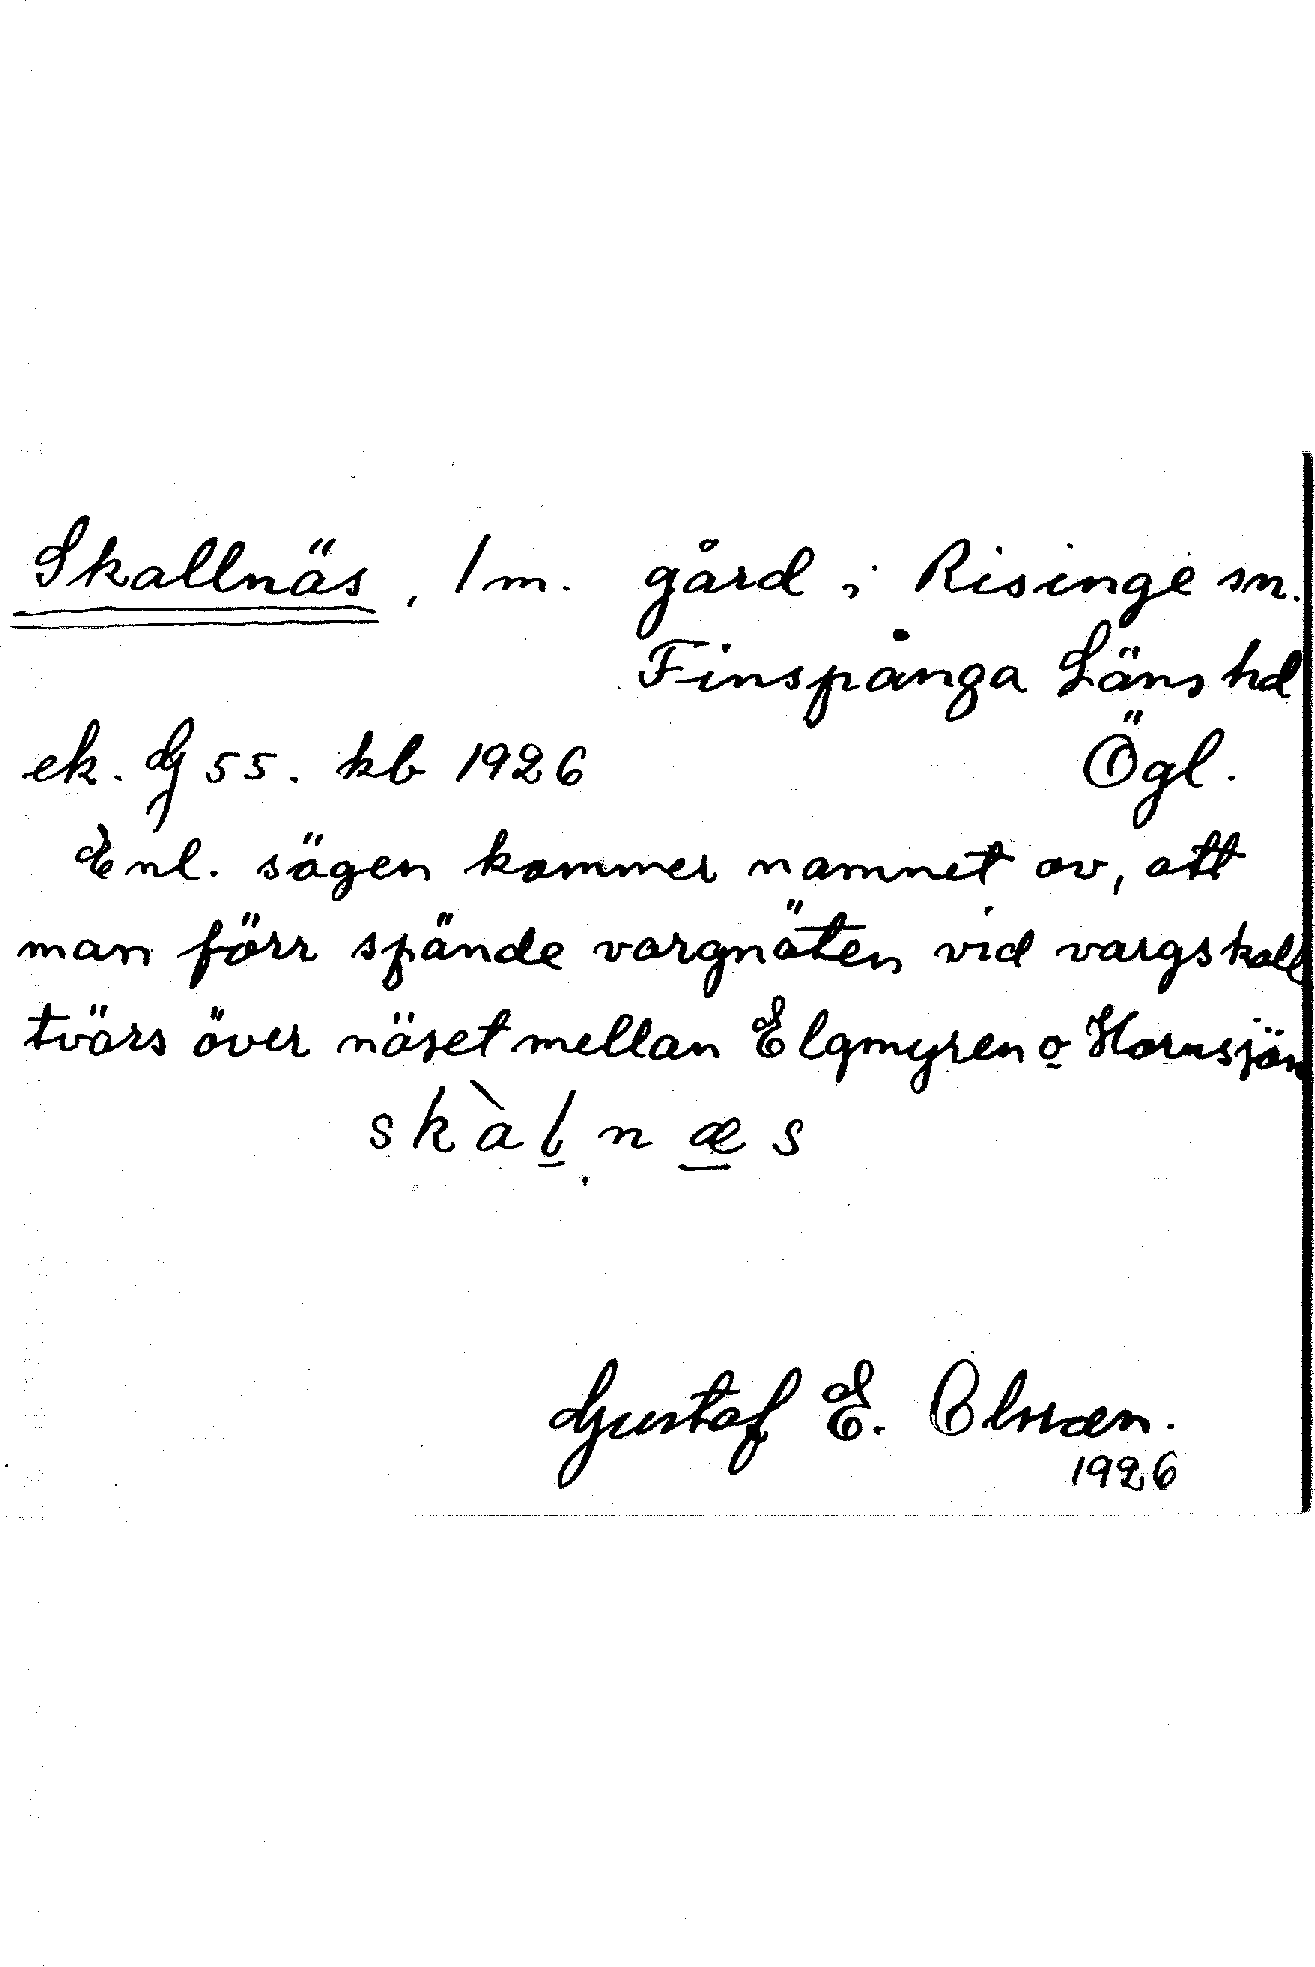 Skallnäs, 1 m. gård i Risinge sn.
Finspånga Läns hd
ek. G 55. kb 1926 Ögl.
Enl. sägen kommer namnet av, att
man förr spände vargnäten vid vargskall
tvärs över näset mellan Elgmyren o Hornsjön
skàlnæs
Gustaf E. Olsson.
1926